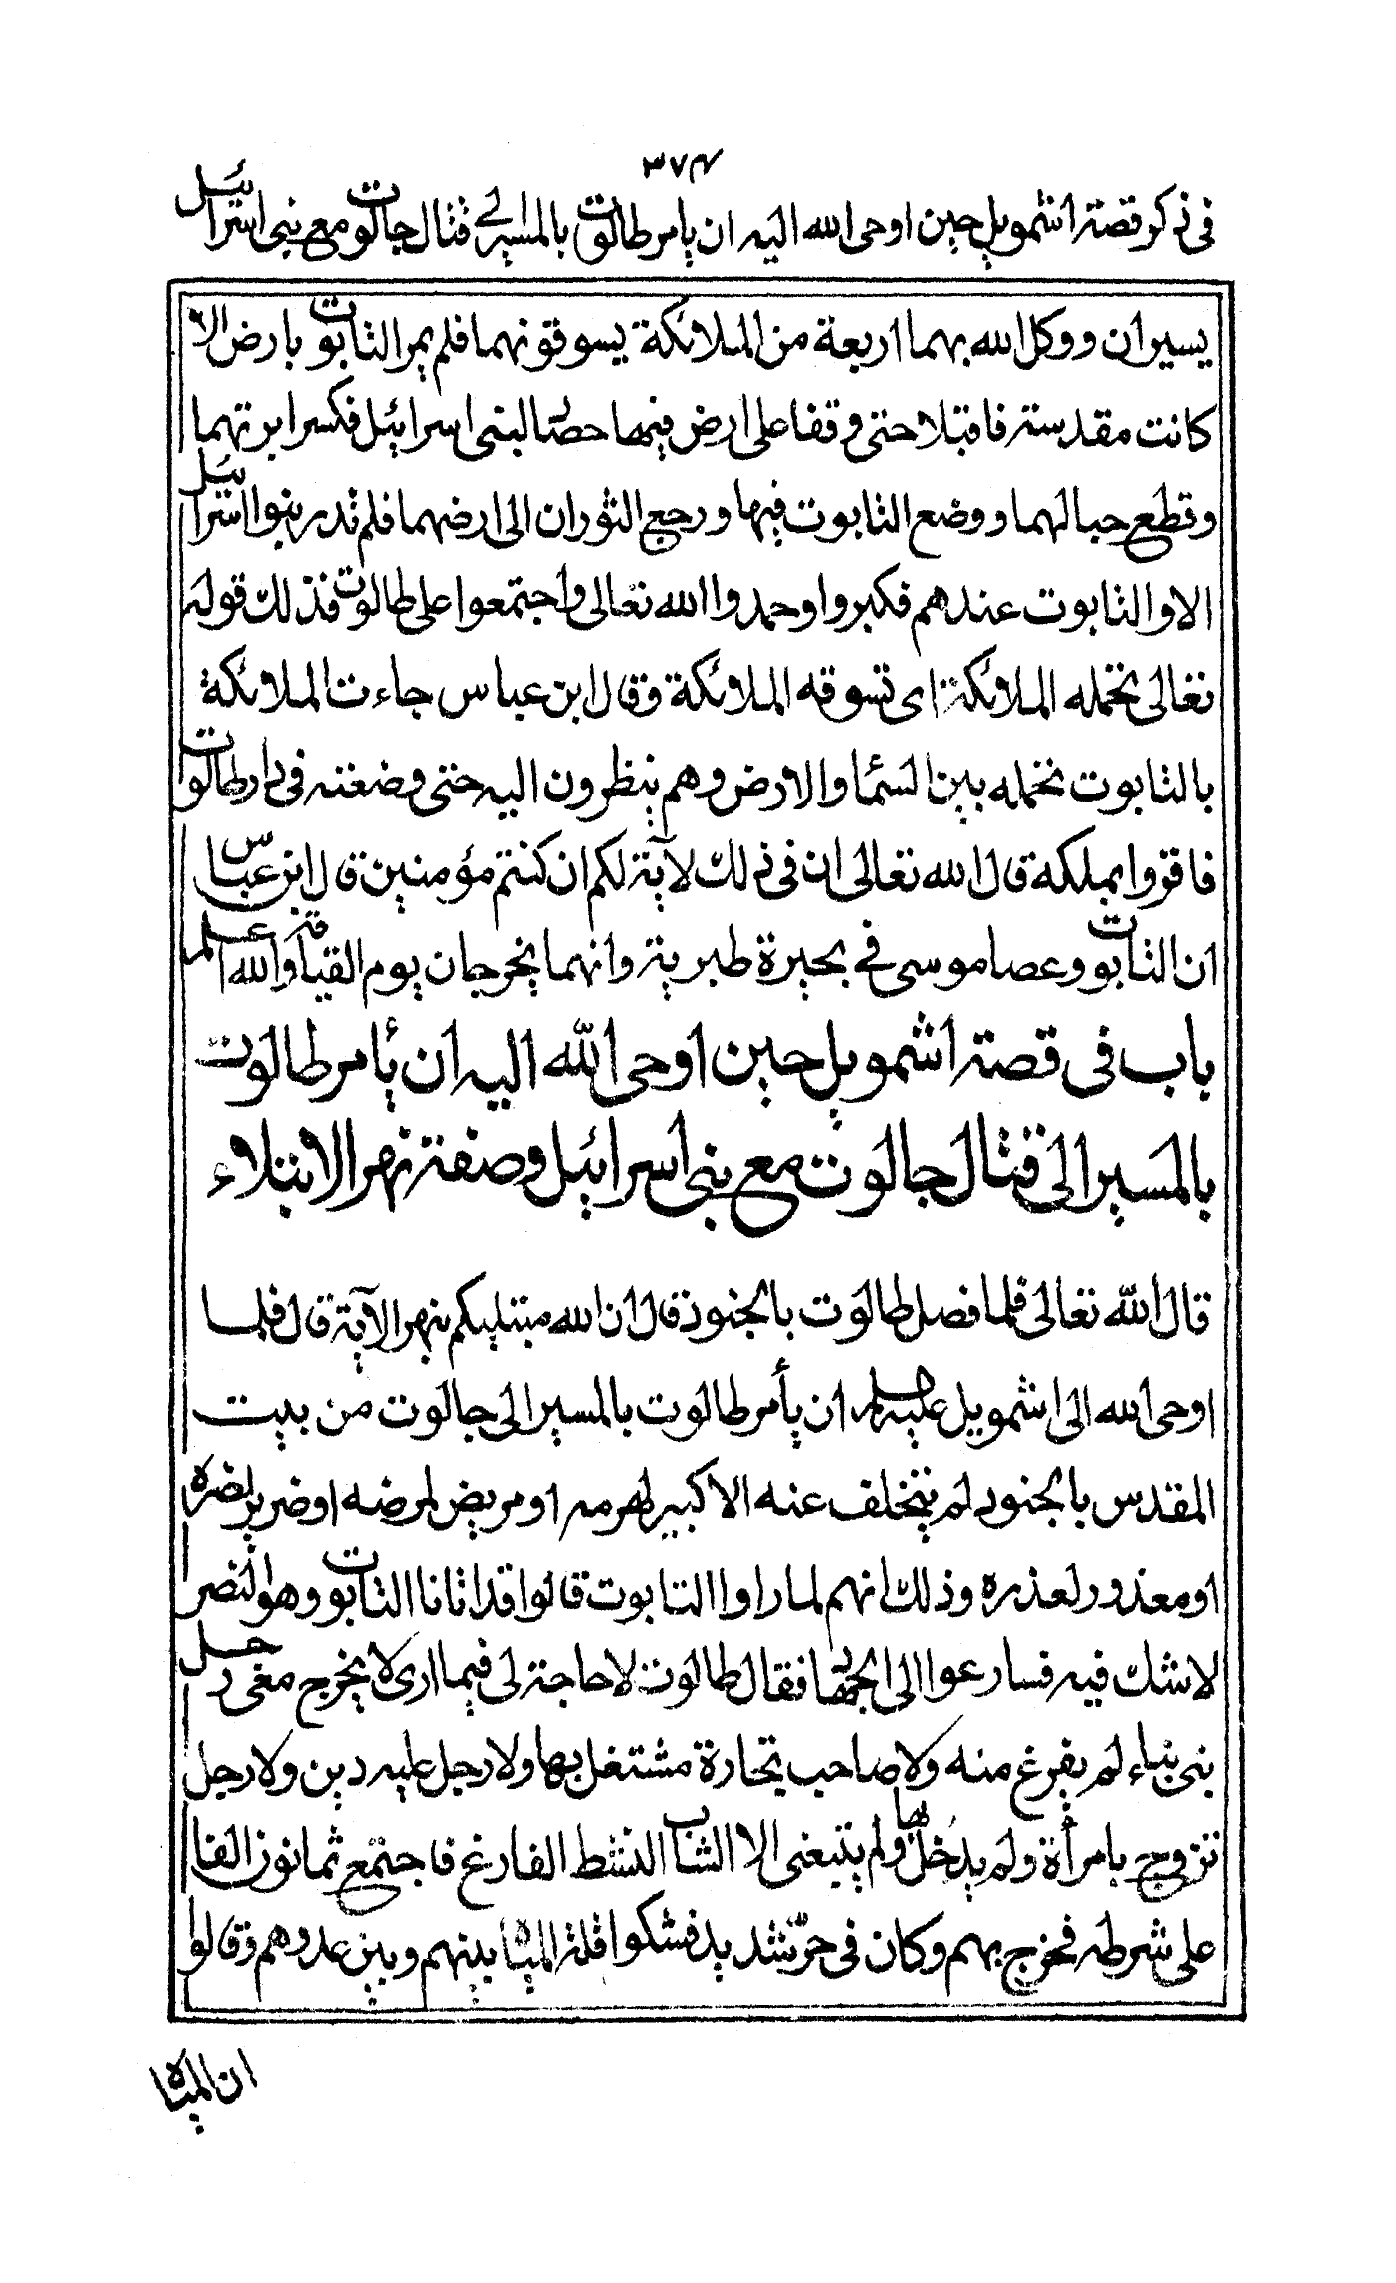 ٣٧٤
في ذكر قصة اشمويل حين اوحى الله اليه ان يأمر طالوت بالمسير الى قتال جالوت مع بنى اسرائيل
يسيران ووكل الله بهما اربعة من الملائكة يسوقونهما فلم يمر التابوت بارض الا
كانت مقدسة فاقبلا حتى وقفا على ارض فيها حصاد لبنى اسرائيل فكسرا برتهما
وقطع حبالهما ووضع التابوت فيها ورجع الثوران الى ارضهما فلم تدر بنوا اسرائيل
الا والتابوت عندهم فكبروا وحمدوا الله تعالى واجتمعوا على طالوت فذلك قوله
تعالى تحمله الملائكة اى تسوقه الملائكة وقال ابن عباس جاءت الملائكة
بالتابوت تحمله بين السماء والارض وهم ينظرون اليه حتى وضعته فى دار طالوت
فاقروا بملكه قال الله تعالى ان فى ذلك لآية لكم ان كنتم مؤمنين قال ابن عباس
ان التابوت وعصا موسى في بحيرة طبرية وانهما يخرجان يوم القيامة والله اعلم
باب فى قصة اشمويل حين اوحى الله اليه ان يأمر طالوت
بالمسير الى قتال جالوت مع بنى اسرائيل وصفة نهر الابتلاء
قال الله تعالى فلما فصل طالوت بالجنود قال ان الله مبتليكم بنهر الآية قال فلما
اوحى الله الى اشمويل عليه السلام ان يأمر طالوت بالمسير الى جالوت من بيت
المقدس بالجنود لم يتخلف عنه الا كبير لهرمه او مريض لمرضه او ضرير لضره
او معذور لعذره وذلك انهم لما راوا التابوت قالوا قد اتانا التابوت وهو النصر
لا شك فيه فسارعوا الى الجهاد فقال طالوت لا حاجة لى فيما ارى لا يخرج معى رجل
بنى بناء لم يفرغ منه ولا صاحب تجارة مشتغل بها ولا رجل عليه دين ولا رجل
تزوج بامرأة ولم يدخل بها ولم يتبعنى الا الشاب النشط الفارغ فاجتمع ثمانون الفا
على شرطه فخرج بهم وكان فى حر شديد فشكوا قلة المياه بينهم وبين عدوهم وقالوا
ان المياه